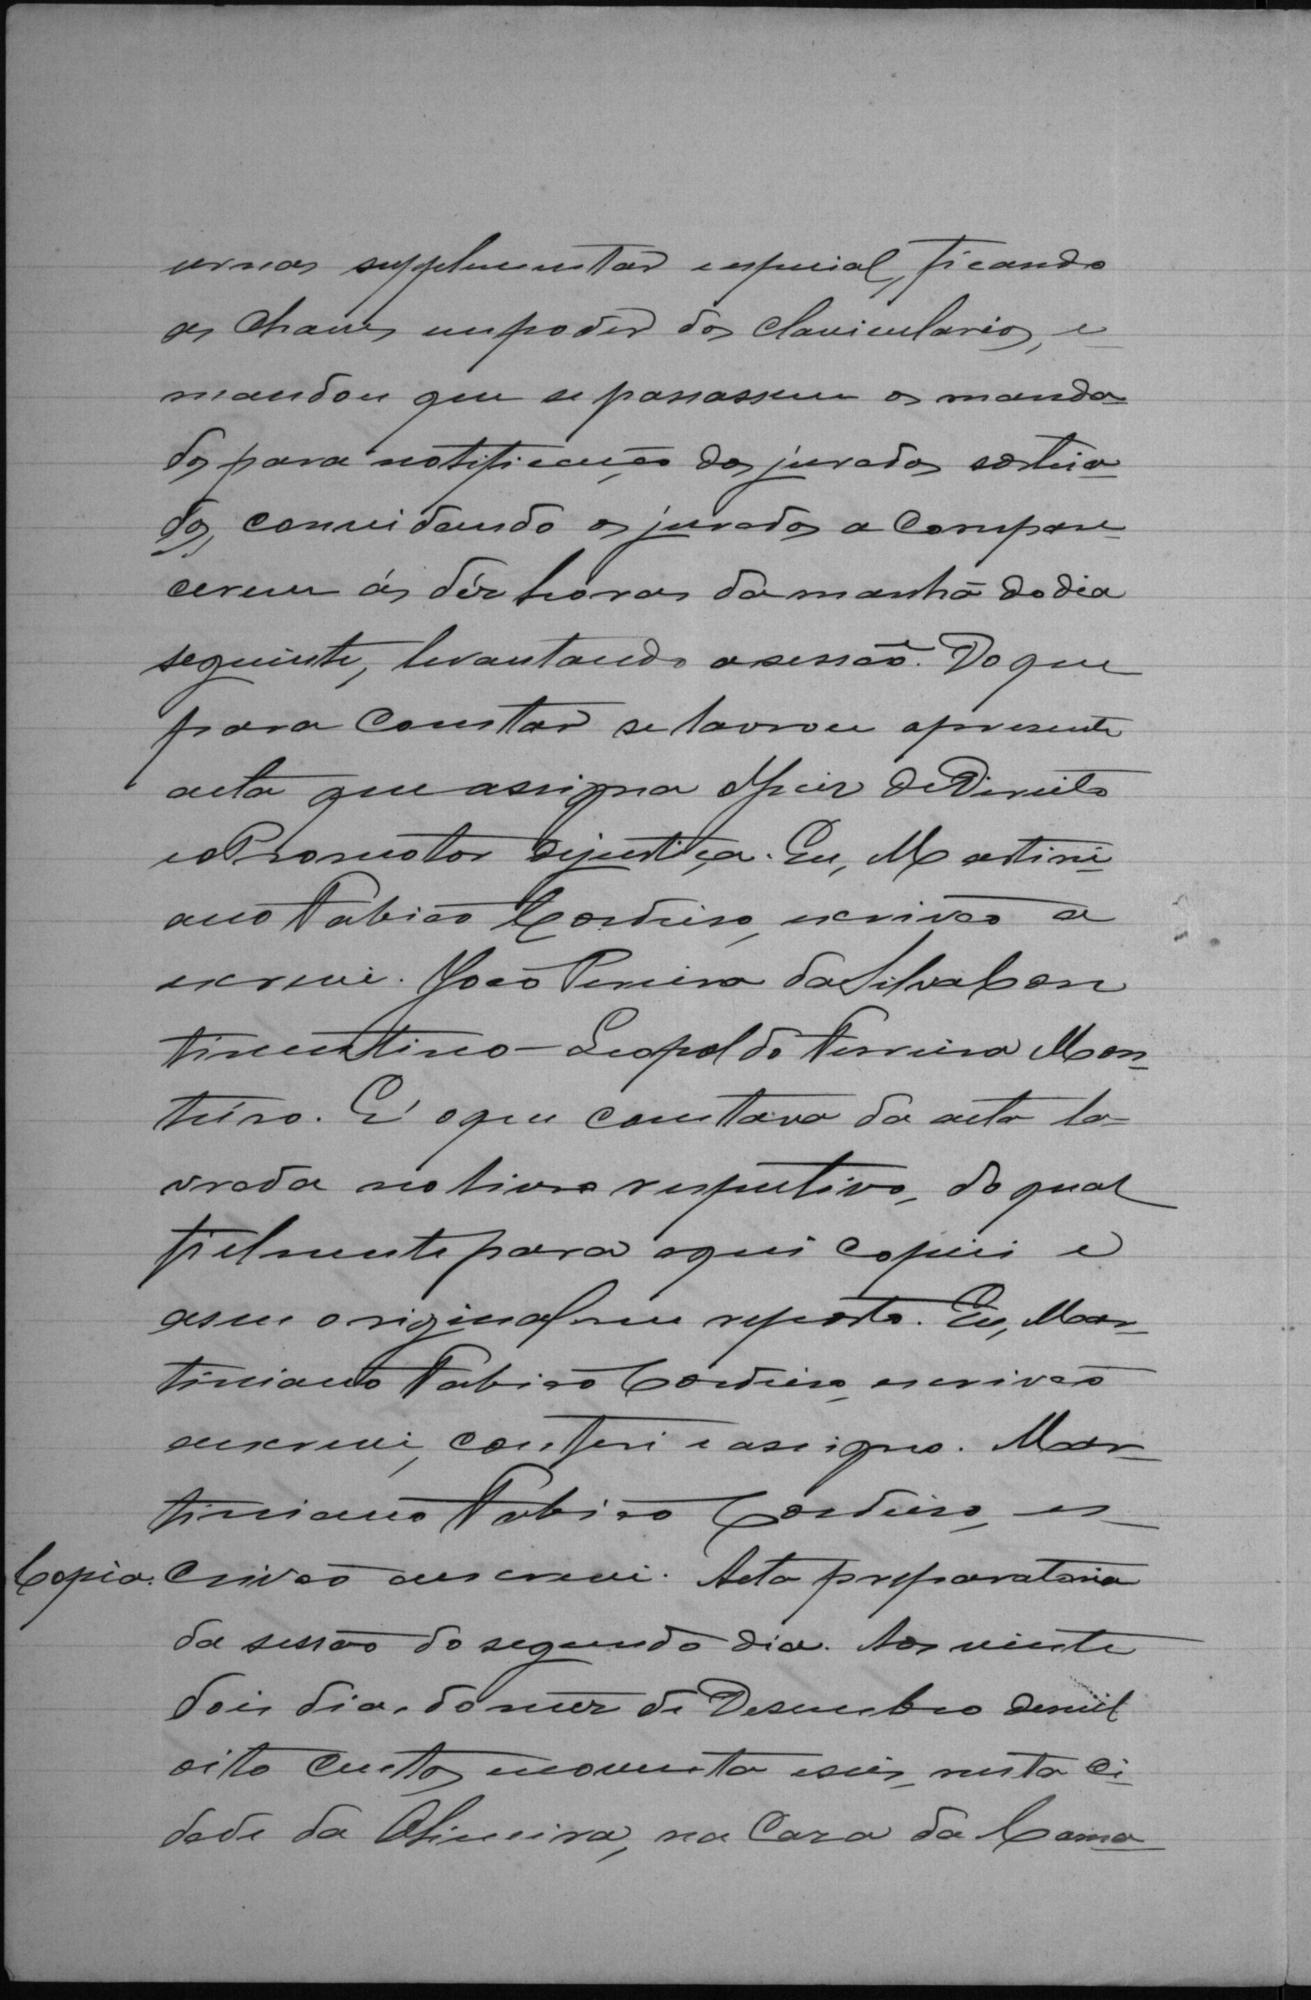 urnas supplementar especial, ficando
as chaves em poder dos clavicularios, e
mandou que se passassem os manda-
dos para notificação dos jurados sortea-
dos, convidando os jurados a compare-
cerem ás déz horas da manhã do dia
seguinte, levantando a sessão. Do que
para constar se lavrou a presente
acta que assigna o Juiz de Direito
e o Promotor de justiça. Eu, Martini-
ano Fabião Cordeiro, escrivão a
escrevi. João Pereira da Silva Con
tinentino - Leopoldo Ferreira Mon-
teiro. É o que constava da acta la-
vrada no livro respectivo, do qual
fielmente para aqui copiei e
ao seu original me reporto. Eu, Mar-
tiniano Fabião Cordeiro, escrivão
escrevi, conferi e assigno. Mar-
tiniano Fabião Cordeiro, es-
Copia. crivão escrevi. Acta preparatoria
da sessão do segundo dia. Aos vinte
dois dias do mez de Desembro de mil
oito centos noventa e seis, nesta ci-
dade da Oliveira, na Caza da Cama-